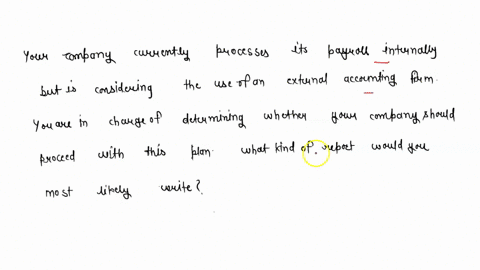 Your company currently processes its payroll internally
but is considering the use of an external accounting firm.
You are in charge of determining whether your company should
proceed with this plan. what kind of report would you
most likely write?